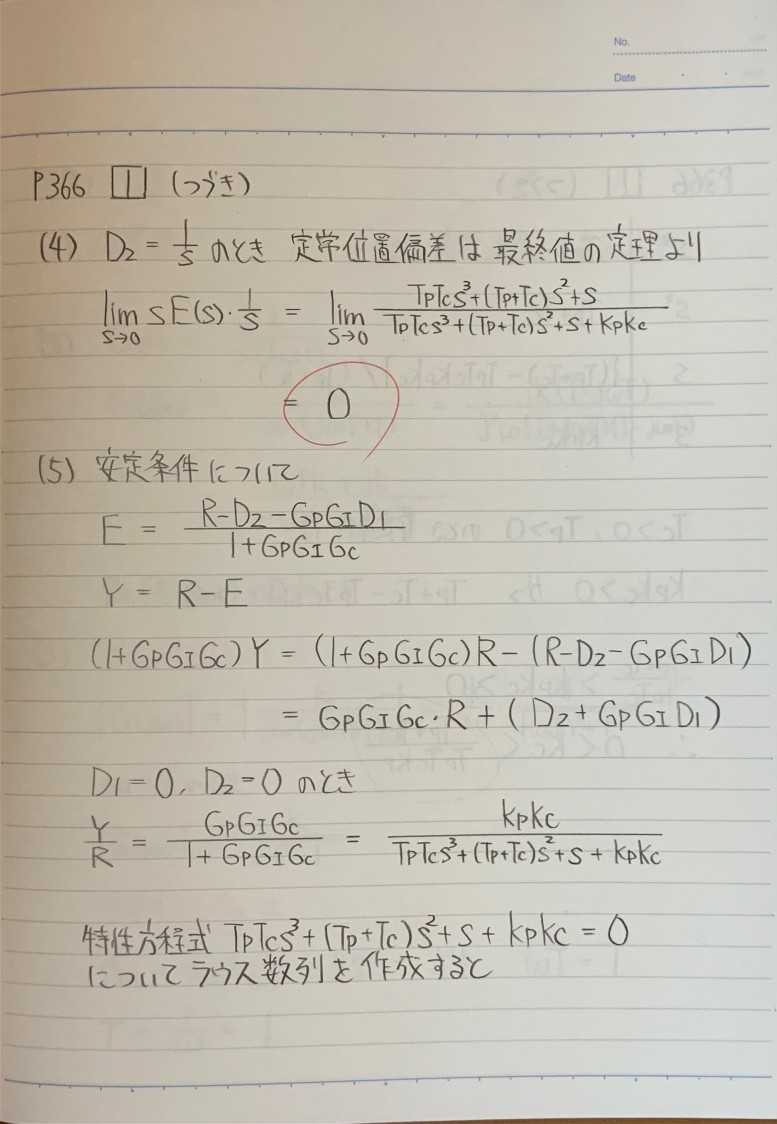 No.
Date
P366 1 (つづき)
(4) D₂ = 1/s のとき 定常位置偏差は 最終値の定理より
lim_{s→0} sE(s)・1/s = lim_{s→0} (TpTcs³+(Tp+Tc)s²+s)/(TpTcs³+(Tp+Tc)s²+s+kpkc)
= 0
(5) 安定条件について
E = (R-D₂-GpGID₁)/(1+GpGIGc)
Y = R-E
(1+GpGIGc)Y = (1+GpGIGc)R-(R-D₂-GpGID₁)
= GpGIGc・R+(D₂+GpGID₁)
D₁=0, D₂=0 のとき
Y/R = GpGIGc/(1+GpGIGc) = kpkc/(TpTcs³+(Tp+Tc)s²+s+kpkc)
特性方程式 TpTcs³+(Tp+Tc)s²+s+kpkc=0
についてラウス数列を作成すると